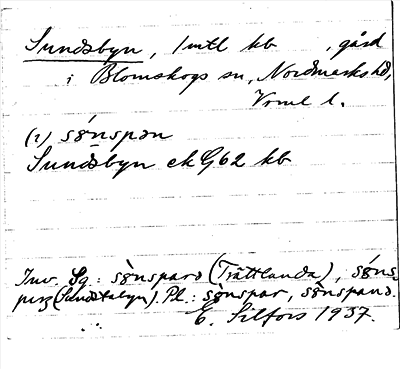 Sundsbyn, 1 mtl kb , gård
i Blomskogs sn, Nordmarks hd,
Värml l.
(1) sønspən
Sundsbyn ek G62 kb
Inv. Sg.: sønsparə (Trättlanda), søns-
(Sundstabyn). Pl.: sønspar, sønspanə.
E. Silfors 1937.